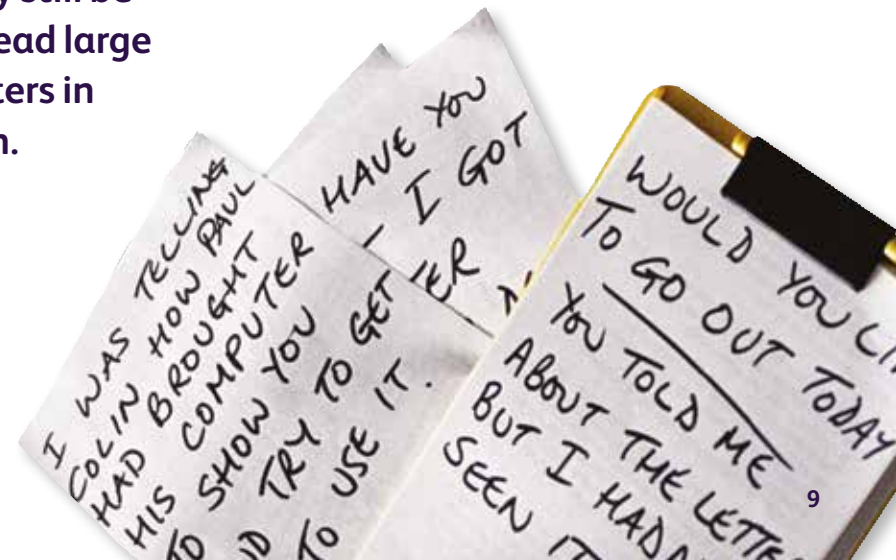 y still be
ead large
ters in
n.
HAVE YOU
– I GOT
ER
I WAS TELLING
COLIN HOW PAUL
HAD BROUGHT
HIS COMPUTER
TO SHOW YOU
ND TRY TO GET
TO USE IT.
WOULD YOU LI
TO GO OUT TODAY
YOU TOLD ME
ABOUT THE LETTE
BUT I HAD
SEEN IT
9